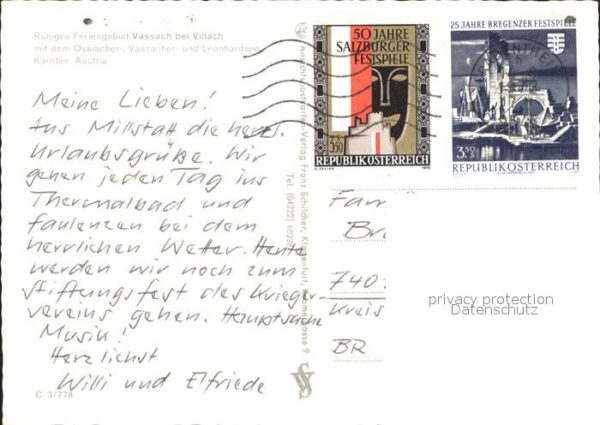 Ruhiges Feriengebiet Vassach bei Villach
mit dem Ossiacher-, Vassacher- und Leonhardsee
Kärnten, Austria
Meine Lieben!
Aus Millstatt die herzl.
Urlaubsgrüße. Wir
gehen jeden Tag ins
Thermalbad und
faulenzen bei dem
herrlichen Wetter. Heute
werden wir noch zum
Stiftungsfest des Krieger-
vereins gehen. Hauptsache
Musik!
Herzlichst
Willi und Elfriede
C 3/778
Ansichtskarten-Verlag Franz Schilcher, Klagenfurt,
Tel. (04222)
50 JAHRE
SALZBURGER
FESTSPIELE
3.50
REPUBLIK ÖSTERREICH
1970
25 JAHRE BREGENZER FESTSPIELE
3.50 S
REPUBLIK ÖSTERREICH
Fam
740
Kreis
BR
privacy protection
Datenschutz